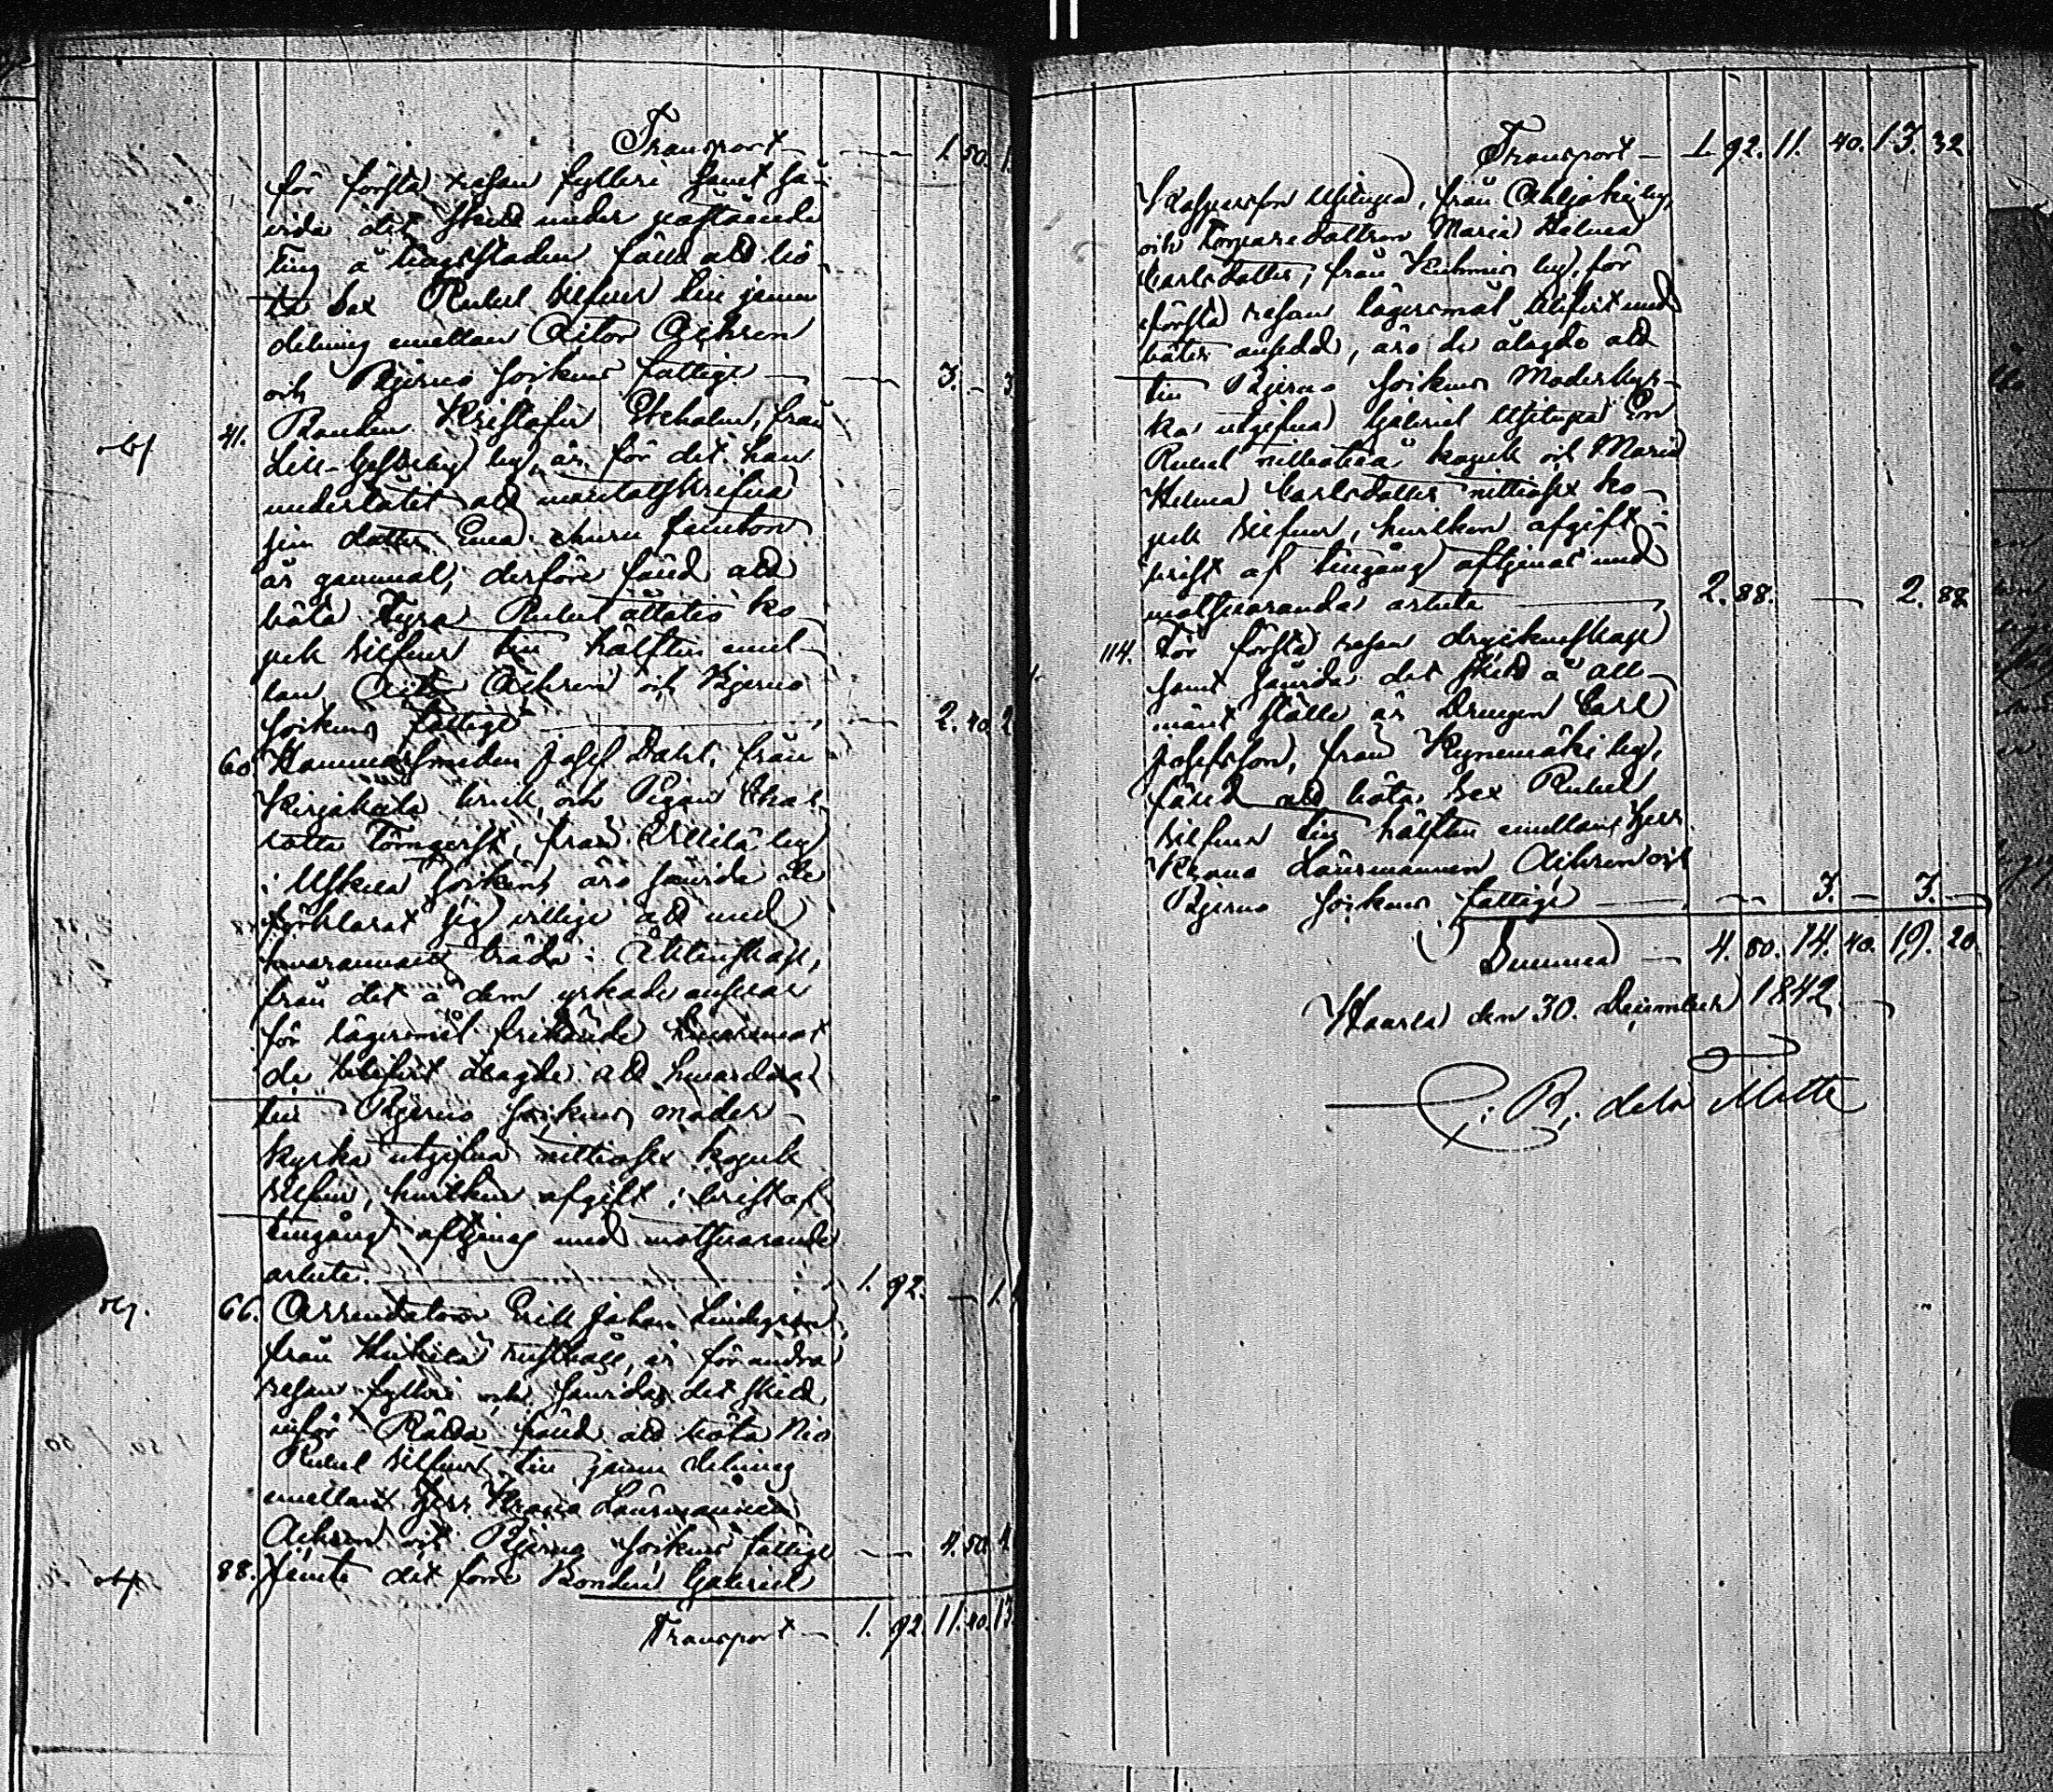 Transport — — 1. 50. 1.
för första resan fylleri samt så-
vida det skedd under påstående
Ting å tingsstaden fälld att bö-
ta Sex Rubel Silfver till jemn
delning emellan Actor Aihren
och Bjerno Sockens fattige — — 3. — 3
41. Bonden Kristofer Ekholm, från
Lill by, är för det han
underlåtit att mantalsskrifva
sin dotter Eva hvru femton
år gammal, derföre fälld att
böta Fyra Rubel åttatio ko-
pek Silfver till hälften emel-
lan Actor Aihren och Bjerno
Sockens fattige — — 2. 40. 2
60. Hammarsmeden Josef Dahl, från
Kirjakkala bruk, och Pigan Char-
lotta Törnqvist, från by
i Uskela Socken, äro såvida de
förklarat sig villige att med
hvarannan träda i Äktenskap,
från det å dem yrkade ansvar
för lägersmål frikände hvaremot
de blifvit ålagde att hvardera
till Bjerno Sockens moder-
kyrka utgifva nittiosex kopek
Silfver, hvilken afgift i brist af
tillgång aftjenas med motsvarande
arbete. — 1. 92. — 1.
66. Arrendatorn Erik Johan Lindegren,
från rusthåll, är för andra
resan fylleri och såvida det skedd
inför Rätta fälld att böta Nio
Rubel Silfver till jemn delning
emellan Herr Krono Länsmannen
Aihren och Bjerno Sockens fattige — 4. 50. 4
88. Jemte det förre Bonden Gabriel
Transport — 1. 92. 11. 40. 13.
Transport — 1. 92. 11. 40. 13. 32.
från by,
och Torparedottren Maria Helena
Carlsdotter, från by, för
första resan lägersmål blifvit med
böter ansedd, äro de ålagde att
till Bjerno Sockens Moderkyr-
ka utgifva Gabriel En
Rubel nittiotvå kopek och Maria
Helena Carlsdotter nittiosex ko-
pek Silfver, hvilken afgift i
brist af tillgång aftjenas med
motsvarande arbete — 2. 88. — 2. 88.
114. För första resan dryckenskap
samt såvida det skedd å all-
mänt ställe är Drengen Carl
Josefsson, från by,
fälld att böta Sex Rubel
Silfver till hälften emellan Herr
Krono Länsmannen Aihren och
Bjerno Sockens fattige — — 3. — 3. —
Summa — 4. 80. 14. 40. 19. 20.
den 30. December 1842.
de la Motte